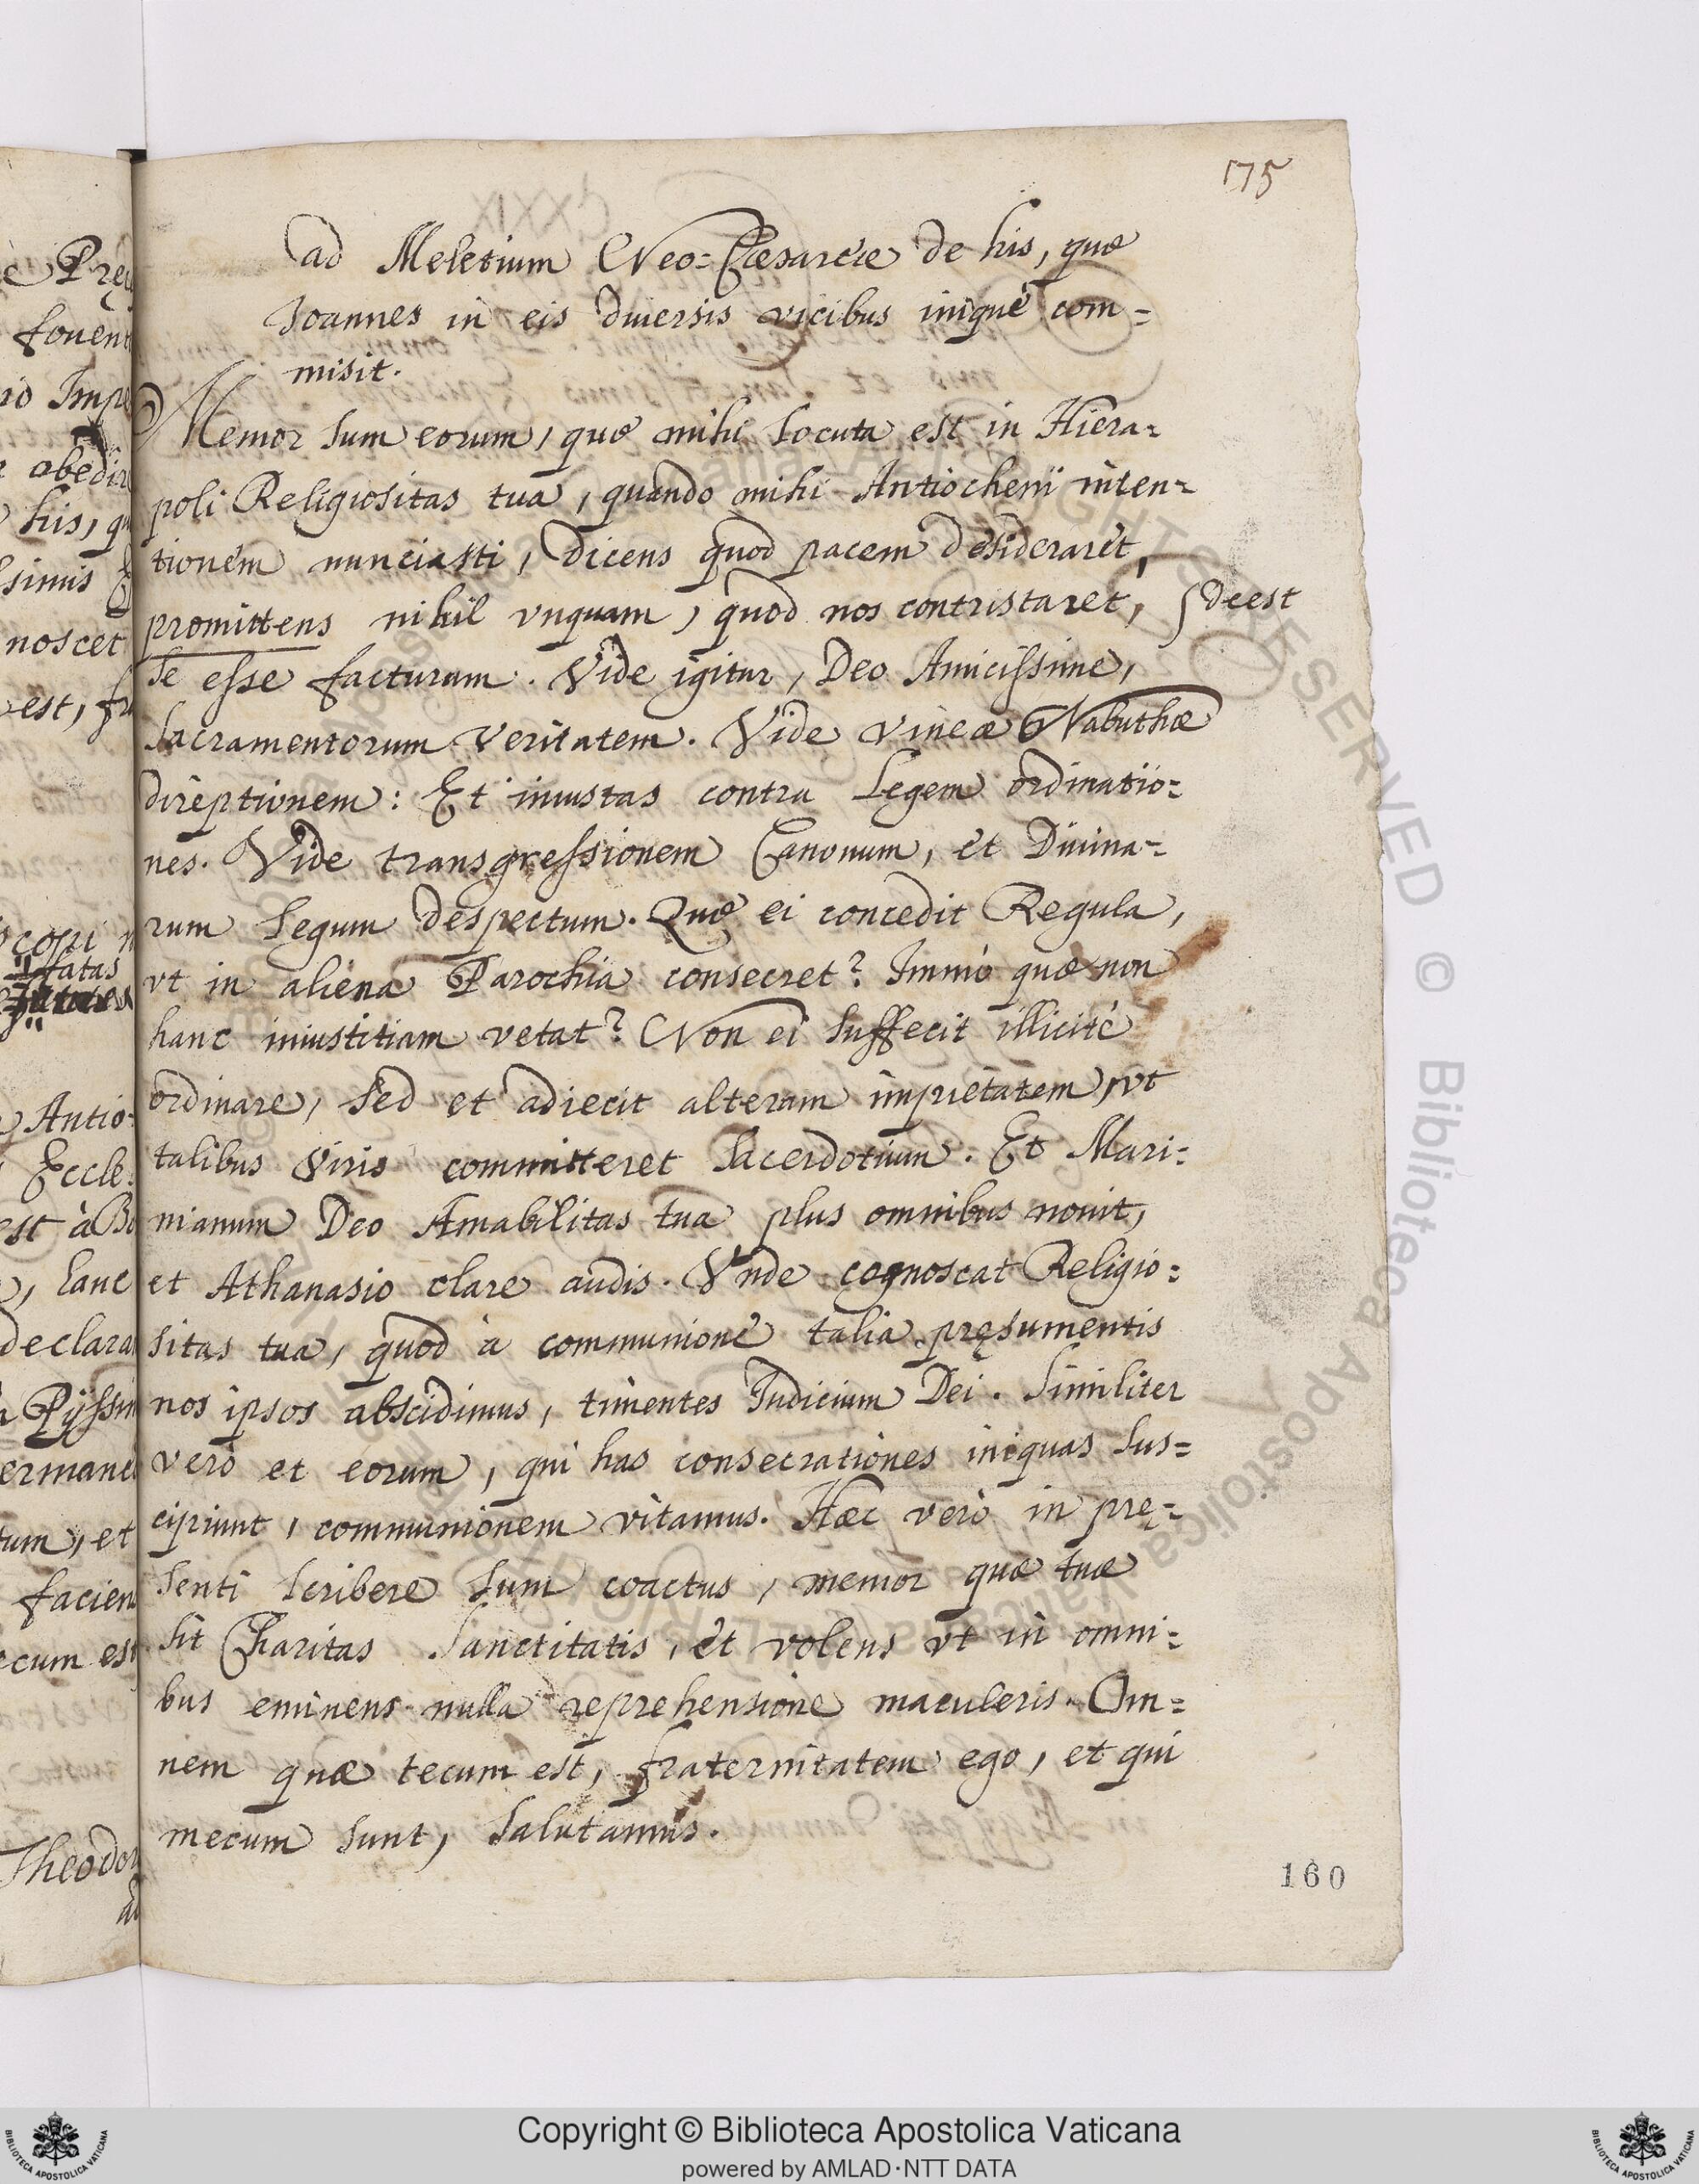 175
ad Meletium Neo=Cæsareæ de his, quę
Joannes in eis diuersis vicibus iniquè com=
misit.
Memor sum eorum, quę mihi locuta est in Hiera=
poli Religiositas tua, quando mihi Antiocheni inten=
tionem nunciasti, dicens quod pacem desideraret,
promittens nihil vnquam, quod nos contristaret, deest
se esse facturum. Vide igitur, Deo Amicissime,
Sacramentorum veritatem. Vide vineæ Nabuthæ
direptionem: Et iniustas contra Legem ordinatio=
nes. Vide transgressionem Canonum, et Diuina=
rum Legum despectum. Quę ei concedit Regula,
vt in aliena Parochia consecret? Immò quæ non
hanc iniustitiam vetat? Non ei suffecit illicitè
ordinare, sed et adiecit alteram impietatem, vt
talibus Viris committeret Sacerdotium. Et Mari=
nianum Deo Amabilitas tua plus omnibus nouit,
et Athanasio clare audis. Vnde cognoscat Religio=
sitas tua, quod à communione talia pręsumentis
nos ipsos abscidimus, timentes Iudicium Dei. Similiter
verò et eorum, qui has consecrationes iniquas sus=
cipiunt, communionem vitamus. Hæc verò in prę=
senti scribere sum coactus, memor quæ tuæ
sit Charitas Sanctitatis, et volens vt in omni=
bus eminens nulla reprehensione maculeris. Om=
nem quæ tecum est, fraternitatem ego, et qui
mecum sunt, Salutamus.
160
fouent
noscet
Antio=
Eccle=
declara
tum, et
Copyright © Biblioteca Apostolica Vaticana
powered by AMLAD·NTT DATA